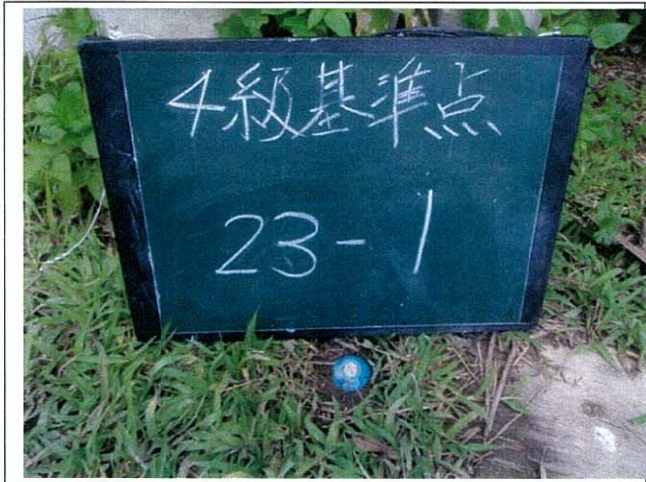 4級基準点
23-1